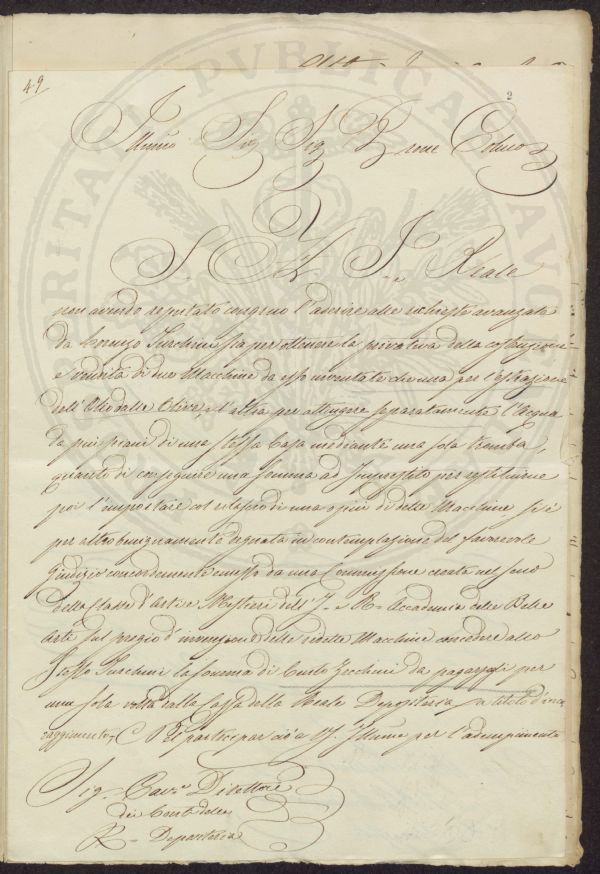 49
2
Illmo Sig Sig Prone Colmo
S. A. I. e Reale
non avendo reputato congruo l'aderire alle richieste avanzate
da Lorenzo Turchini sia per ottenere la privativa della costruzione
e vendita di due Macchine da esso inventate che una per l'estrazione
dell'Olio dalle Olive, e l'altra per attingere separatamente l'Acqua
da più piani di una stessa Casa mediante una sola tromba,
quanto di conseguire una somma ad Imprestito per restituirne
poi l'importare col rilascio di una o più di dette Macchine si è
per altro benignamente degnata in contemplazione del favorevole
giudizio concordemente emesso da una Commissione creata nel seno
della Classe d'Arti e Mestieri dell'I. e R. Accademia delle Belle
Arti sul pregio d'invenzione delle redette Macchine concedere allo
stesso Turchini la somma di Cento Zecchini da pagarsegli per
una sola volta dalla Cassa della Reale Depositeria a titolo d'inco
raggimento, E nel partecipar ciò a VS. Illma per l'adempimento
Sig. Cavre Direttore
dei Conti della
R. Depositeria
PUBLICAE